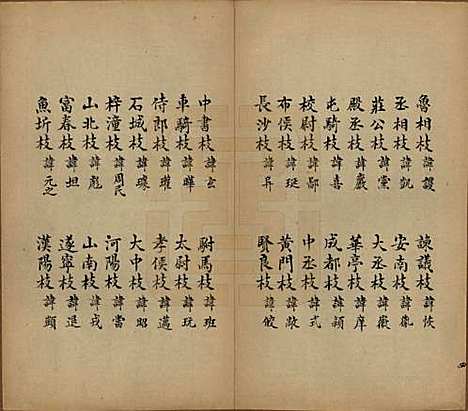 魯相枝 諱謖
丞相枝 諱凱
莊公枝 諱棠
殿丞枝 諱襄
屯騎枝 諱喜
校尉枝 諱鄢
布侯枝 諱珽
長沙枝 諱兵
諫議枝 諱恢
安南枝 諱胤
大丞枝 諱徽
華亭枝 諱庠
成都枝 諱穎
中丞枝 諱式
黃門枝 諱敞
賢良枝 諱儆
中書枝 諱玄
車騎枝 諱曄
侍郎枝 諱瓘
石城枝 諱璩
梓潼枝 諱周氏
山北枝 諱彪
富春枝 諱坦
魚圻枝 諱元之
駙馬枝 諱班
太尉枝 諱玩
孝侯枝 諱邁
大中枝 諱昭
河陽枝 諱當
山南枝 諱戎
遂寧枝 諱退
漢陽枝 諱顗